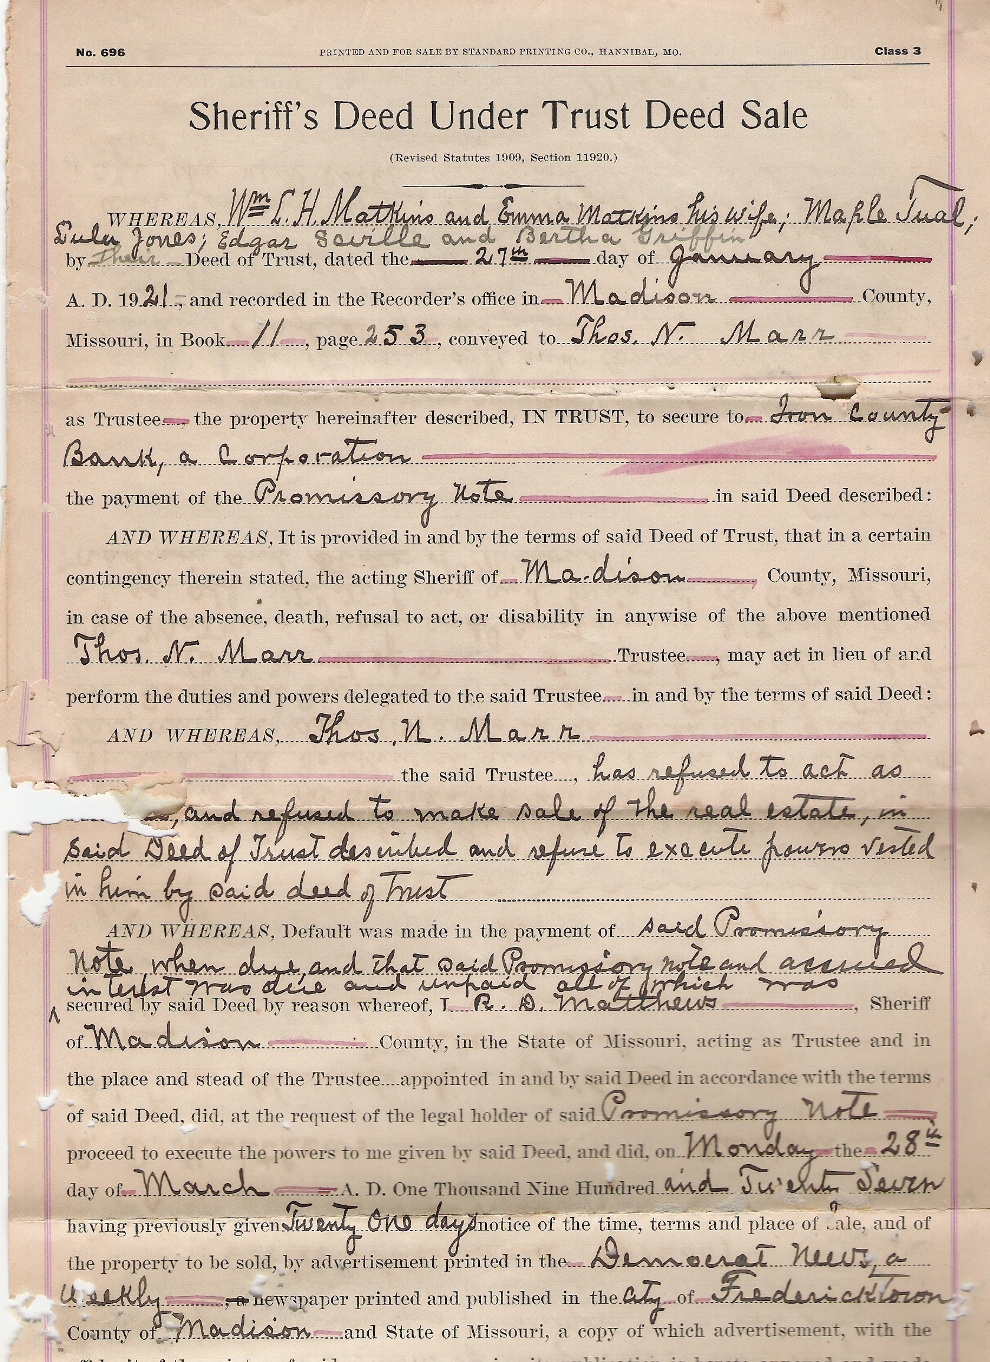 No. 696 PRINTED AND FOR SALE BY STANDARD PRINTING CO., HANNIBAL, MO. Class 3
Sheriff's Deed Under Trust Deed Sale
(Revised Statutes 1909, Section 11920.)
WHEREAS, Wm L. H. Matkins and Emma Matkins his wife; Maple Tual;
Lula Jones; Edgar Seville and Bertha Griffin
by Their Deed of Trust, dated the 27th day of January
A. D. 1921, and recorded in the Recorder's office in Madison County,
Missouri, in Book 11, page 253, conveyed to Thos. N. Marr
as Trustee the property hereinafter described, IN TRUST, to secure to Iron County
Bank, a Corporation
the payment of the Promissory Note in said Deed described:
AND WHEREAS, It is provided in and by the terms of said Deed of Trust, that in a certain
contingency therein stated, the acting Sheriff of Madison County, Missouri,
in case of the absence, death, refusal to act, or disability in anywise of the above mentioned
Thos. N. Marr Trustee, may act in lieu of and
perform the duties and powers delegated to the said Trustee in and by the terms of said Deed:
AND WHEREAS, Thos. N. Marr
the said Trustee, has refused to act as
, and refused to make sale of the real estate, in
said Deed of Trust described and refuse to execute powers vested
in him by said deed of Trust
AND WHEREAS, Default was made in the payment of said Promissory
Note, when due, and that said Promissory note and accrued
interest was due and unpaid all of which was
secured by said Deed by reason whereof, I R. D. Matthews, Sheriff
of Madison County, in the State of Missouri, acting as Trustee and in
the place and stead of the Trustee....appointed in and by said Deed in accordance with the terms
of said Deed, did, at the request of the legal holder of said Promissory Note
proceed to execute the powers to me given by said Deed, and did, on Monday the 28th
day of March A. D. One Thousand Nine Hundred and Twenty Seven
having previously given Twenty One days notice of the time, terms and place of sale, and of
the property to be sold, by advertisement printed in the Democrat News, a
Weekly newspaper printed and published in the City of Fredericktown
County of Madison and State of Missouri, a copy of which advertisement, with the